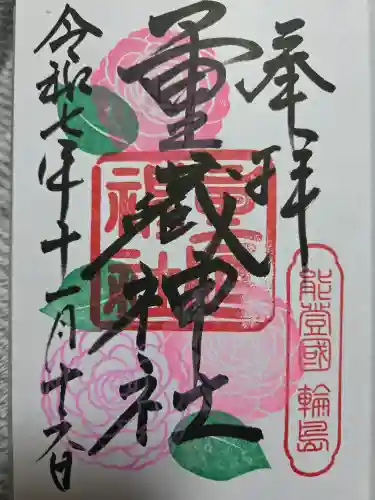 奉拝
重蔵神社
能登國 輪島
令和七年十一月十六日